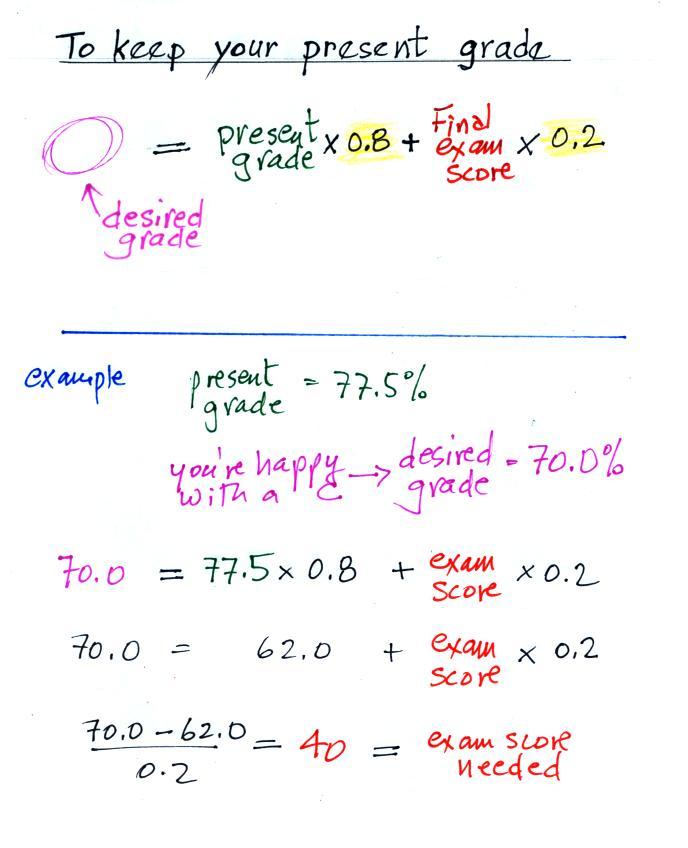 To keep your present grade
= present grade x 0.8 + Final exam score x 0.2
desired grade
example present grade = 77.5%
you're happy with a C → desired grade = 70.0%
70.0 = 77.5 x 0.8 + exam score x 0.2
70.0 = 62.0 + exam score x 0.2
70.0 - 62.0 / 0.2 = 40 = exam score needed